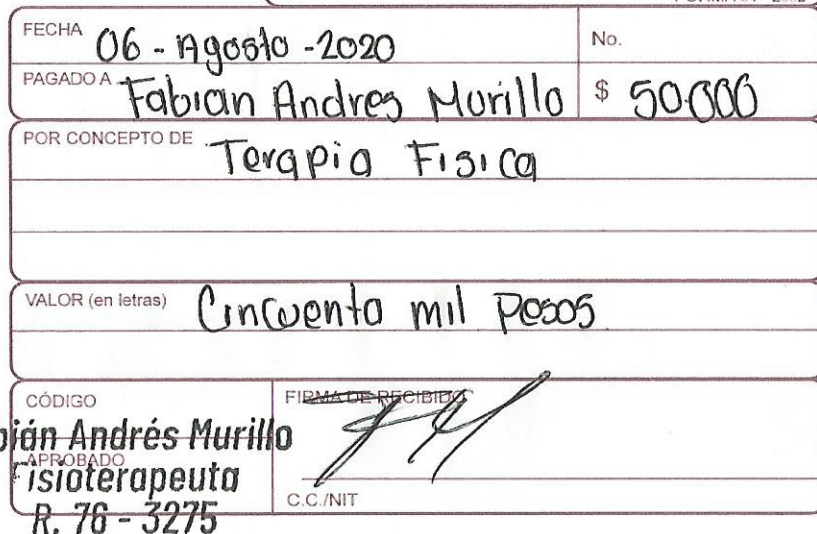 FECHA 06 - Agosto - 2020 No.
PAGADO A Fabian Andres Murillo $ 50.000
POR CONCEPTO DE Terapia Fisica
VALOR (en letras) Cincuenta mil Pesos
CÓDIGO FIRMA DE RECIBIDO
bián Andrés Murillo
APROBADO
Fisioterapeuta
C.C./NIT
R. 76 - 3275